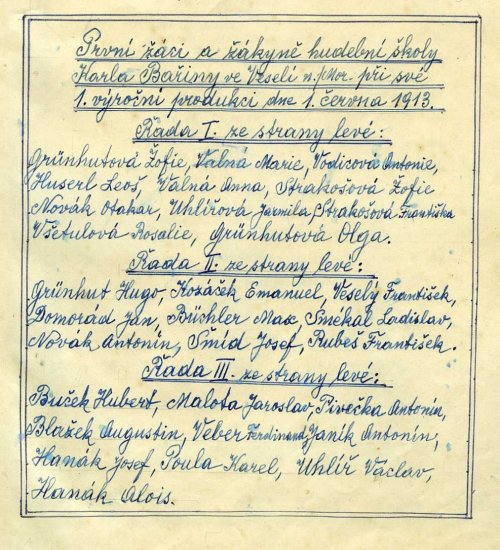 První žáci a žákyně hudební školy
Karla Bařiny ve Veselí n./Mor. při své
1. výroční produkci dne 1. června 1913.
Řada I. ze strany levé:
Grünhutová Žofie, Valná Marie, Vodicová Antonie,
Huserl Leoš, Valná Anna, Strakošová Žofie
Novák Otakar, Uhlířová Jarmila, Strakošová Františka
Všetulová Rosalie, Grünhutová Olga.
Řada II. ze strany levé:
Grünhut Hugo, Kozáček Emanuel, Veselý František,
Domorád Jan, Büchler Max, Smékal Ladislav,
Novák Antonín, Šmíd Josef, Rubeš František.
Řada III. ze strany levé:
Buček Hubert, Malota Jaroslav, Pivečka Antonín,
Blažek Augustin, Veber Ferdinand, Janík Antonín,
Hanák Josef, Poula Karel, Uhlíř Václav,
Hanák Alois.